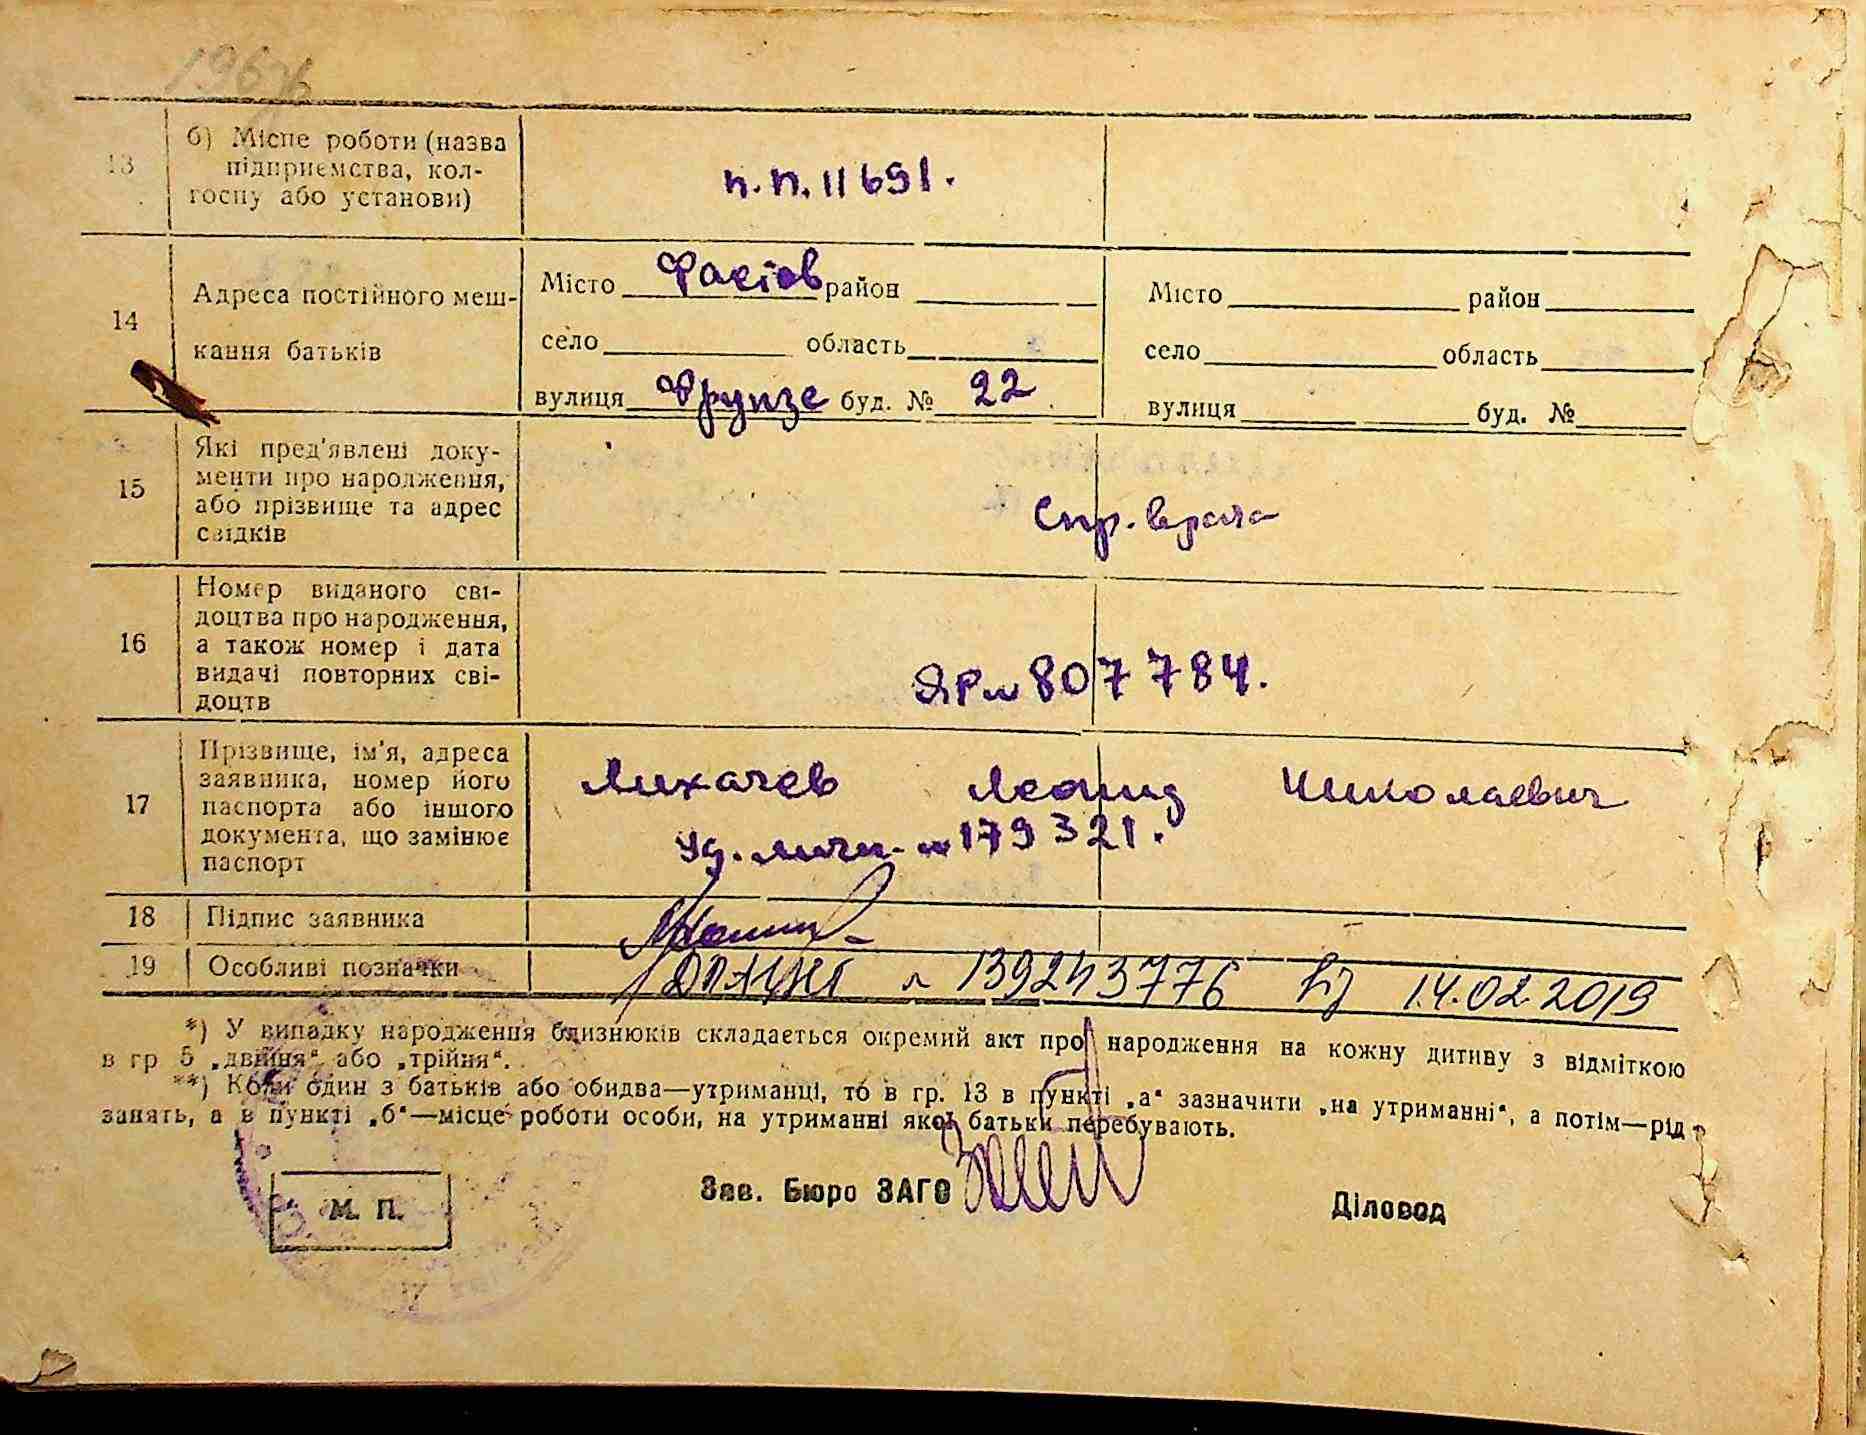 196
13
б) Місце роботи (назва
підприємства, кол-
госпу або установи)
п.п. 11691.
14
Адреса постійного меш-
кання батьків
Місто Фастов район
село область
вулиця Фрунзе буд. № 22
Місто район
село область
вулиця буд. №
15
Які пред'явлені доку-
менти про народження,
або прізвище та адрес
свідків
Спр. врача
16
Номер виданого сві-
доцтва про народження,
а також номер і дата
видачі повторних сві-
доцтв
ЯР № 807784.
17
Прізвище, ім'я, адреса
заявника, номер його
паспорта або іншого
документа, що замінює
паспорт
Лихачев Леонид Николаевич
уд. личн. № 179321.
18
Підпис заявника
19
Особливі позначки
№ 139243776 14.02.2019
*) У випадку народження близнюків складається окремий акт про народження на кожну дитину з відміткою
в гр 5 „двійня“ або „трійня“.
**) Коли один з батьків або обидва—утриманці, то в гр. 13 в пункті „а“ зазначити „на утриманні“, а потім—рід
занять, а в пункті „б“—місце роботи особи, на утриманні якої батьки перебувають.
М. П.
Зав. Бюро ЗАГС
Діловод